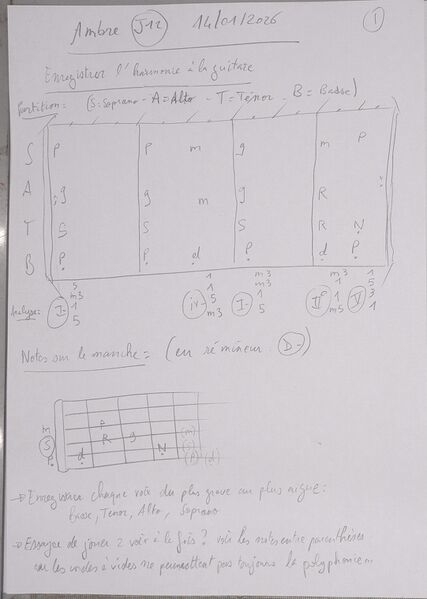 Ambre J12 14/01/2026 1
Enregistrer l'harmonie à la guitare
Partition = (S=Soprano - A=Alto - T=Ténor - B=Basse)
S P P m g m P
A g g m g R
T S S S R N
B P P d P d P
Analyse: I- iv- I- II° V
5 m3 1 5
1 1 5 m3
m3 m3 1 5
m3 1 1 m5
1 5 3 1
Notes sur le manche = (en ré mineur D-)
P
m R g (m)
S (S)
P d N (P) (d)
→ Enregistrer chaque voix du plus grave au plus aigüe:
Basse, Tenor, Alto, Soprano
→ Essayer de jouer 2 voix à la fois? voir les notes entre parenthèses
car les cordes à vides ne permettent pas toujours la polyphonie...